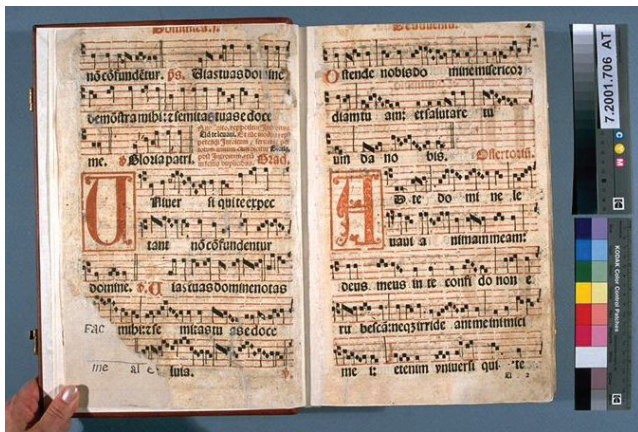 Dominica. j.
nõ cõfundẽtur. ps. Uias tuas domine
demõstra mihi: ⁊ semitas tuas edoce
me. Gloria patri. Grad.
U Niver si qui te expec
tant nõ cõfundentur
domine. ℣. U ias tuas domine notas
fac mihi: ⁊ se mitas tu as edoce
me al luia.
Adventus.
O stende nobis do mine misericor
diam tu am: et salutare tu
um da no bis. Offertoriũ.
A D te do mi ne le
vavi a nimam meam:
deus meus in te confi do non e
ru bescã: neqz irride ant me inimici
me i: etenim vniversi qui te
7.2001.706 AT
C
Y
M
KODAK Color Control Patches